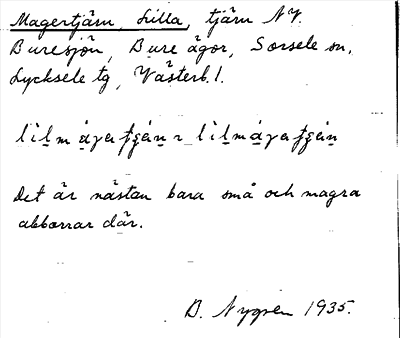 Magertjärn, Lilla, tjärn NV.
Buresjön, Bure ägor, Sorsele sn,
Lycksele tg, Västerb. l.
Det är nästan bara små och magra
abborrar där.
B. Nygren 1935.